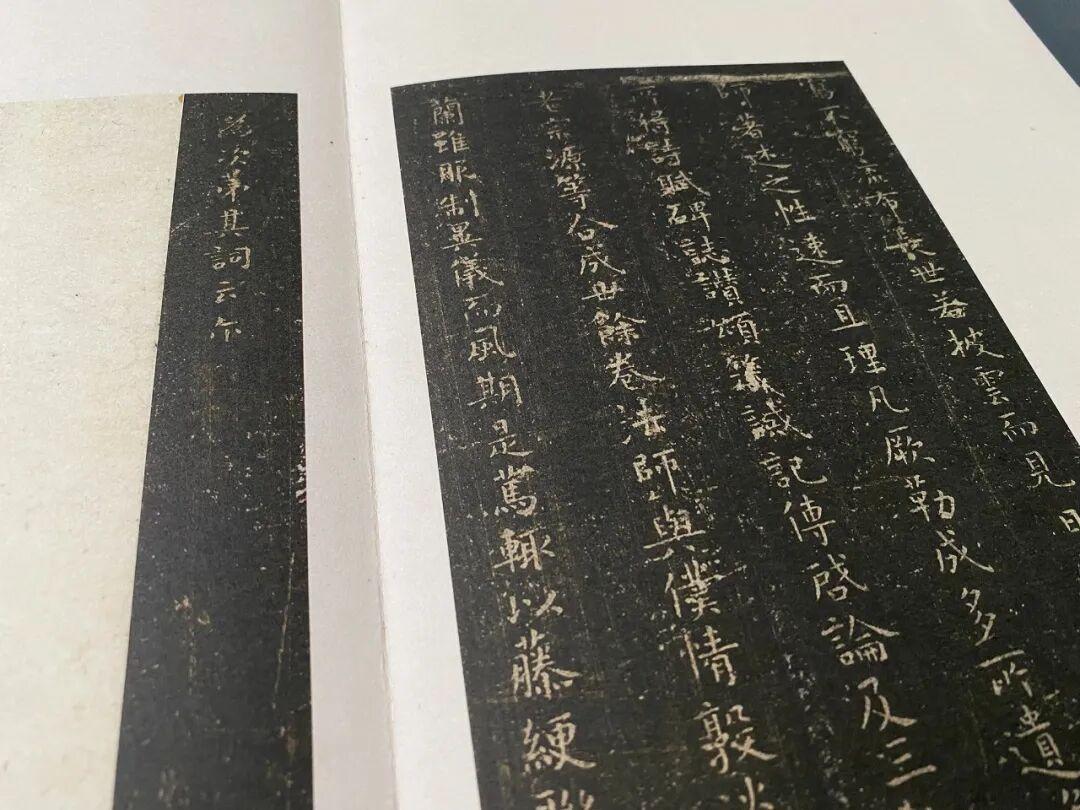 寫不窮流布長世若披雲而見日
師著述之性速而且理凡厥勒成多所遺
所得詩賦碑誌讚頌箴誡記傳啓論及三
者宗源等合成卅餘卷法師與僕情敦
蘭雖服制異儀而風期是篤輒以藤綆
為次第其詞云尒